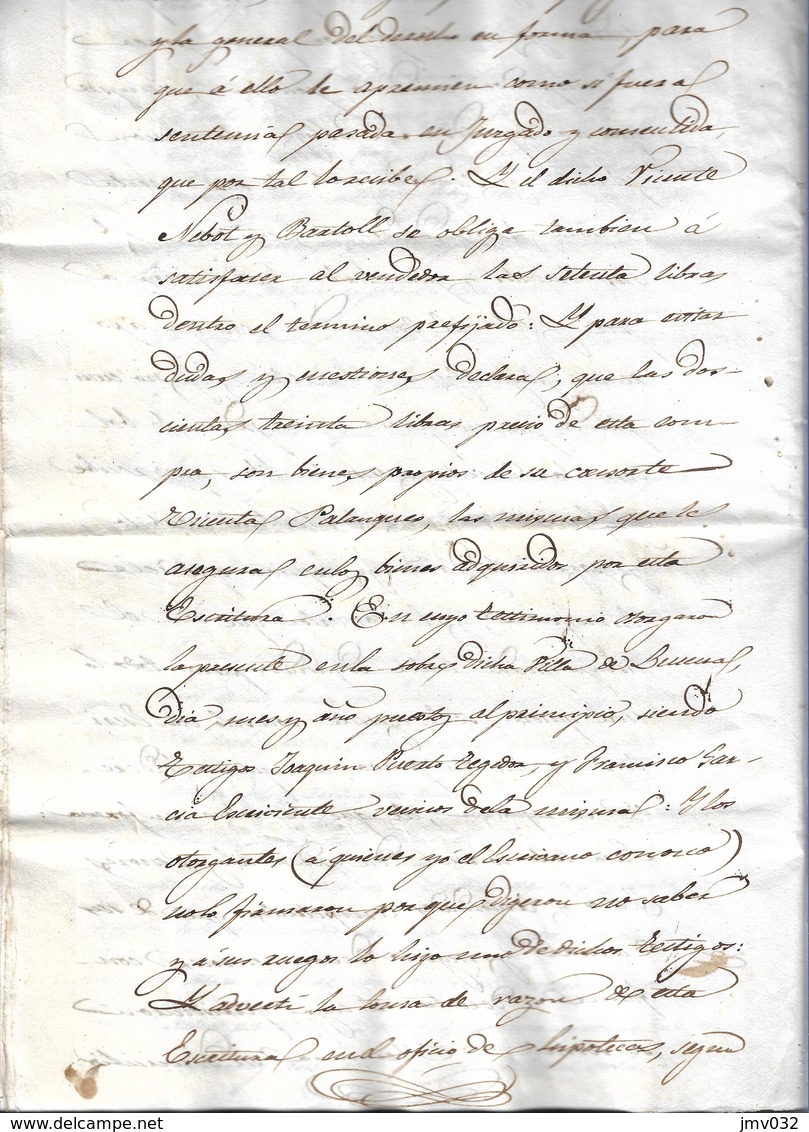 y la general del derecho en forma, para
que á ello le apremien como si fuera
sentencia pasada en Juzgado y consentida,
que por tal lo recibe. Y el dicho Vicente
Nebot y Bartoll se obliga tambien á
satisfacer al vendedor las setenta libras
dentro el termino prefijado: Y para evitar
dudas y cuestiones declara, que las dos-
cientas treinta libras precio de esta com
pra, son bienes propios de su consorte
Vicenta Palanques, las mismas que le
asegura en los bienes adquiridos por esta
Escritura. En cuyo testimonio otorgaron
la presente en la sobre dicha Villa de
dia, mes y año puesto al principio, siendo
testigos Joaquin Puerto tegedor, y Francisco Gar-
cia Escribiente vecinos de la misma: Y los
otorgantes (á quienes yo el Escribano conozco)
no lo firmaron por que digeron no saber
y á sus ruegos lo hizo uno de dichos testigos:
Y advertí la toma de razon de esta
Escritura en el oficio de hipotecas, segun
delcampe.net
jmv032